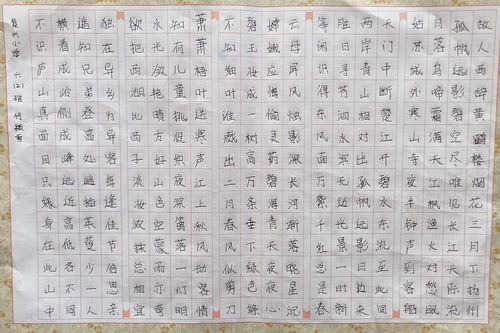 故人西辞黄鹤楼烟花三月下扬州
孤帆远影碧空尽唯见长江天际流
月落乌啼霜满天江枫渔火对愁眠
姑苏城外寒山寺夜半钟声到客船
天门中断楚江开碧水东流至此回
两岸青山相对出孤帆一片日边来
胜日寻芳泗水滨无边光景一时新
等闲识得东风面万紫千红总是春
云母屏风烛影深长河渐落晓星沉
嫦娥应悔偷灵药碧海青天夜夜心
碧玉妆成一树高万条垂下绿丝绦
不知细叶谁裁出二月春风似剪刀
萧萧梧叶送寒声江上秋风动客情
知有儿童挑促织夜深篱落一灯明
水光潋滟晴方好山色空蒙雨亦奇
欲把西湖比西子淡妆浓抹总相宜
独在异乡为异客每逢佳节倍思亲
遥知兄弟登高处遍插茱萸少一人
横看成岭侧成峰远近高低各不同
不识庐山真面目只缘身在此山中
复兴小学 六(2)班